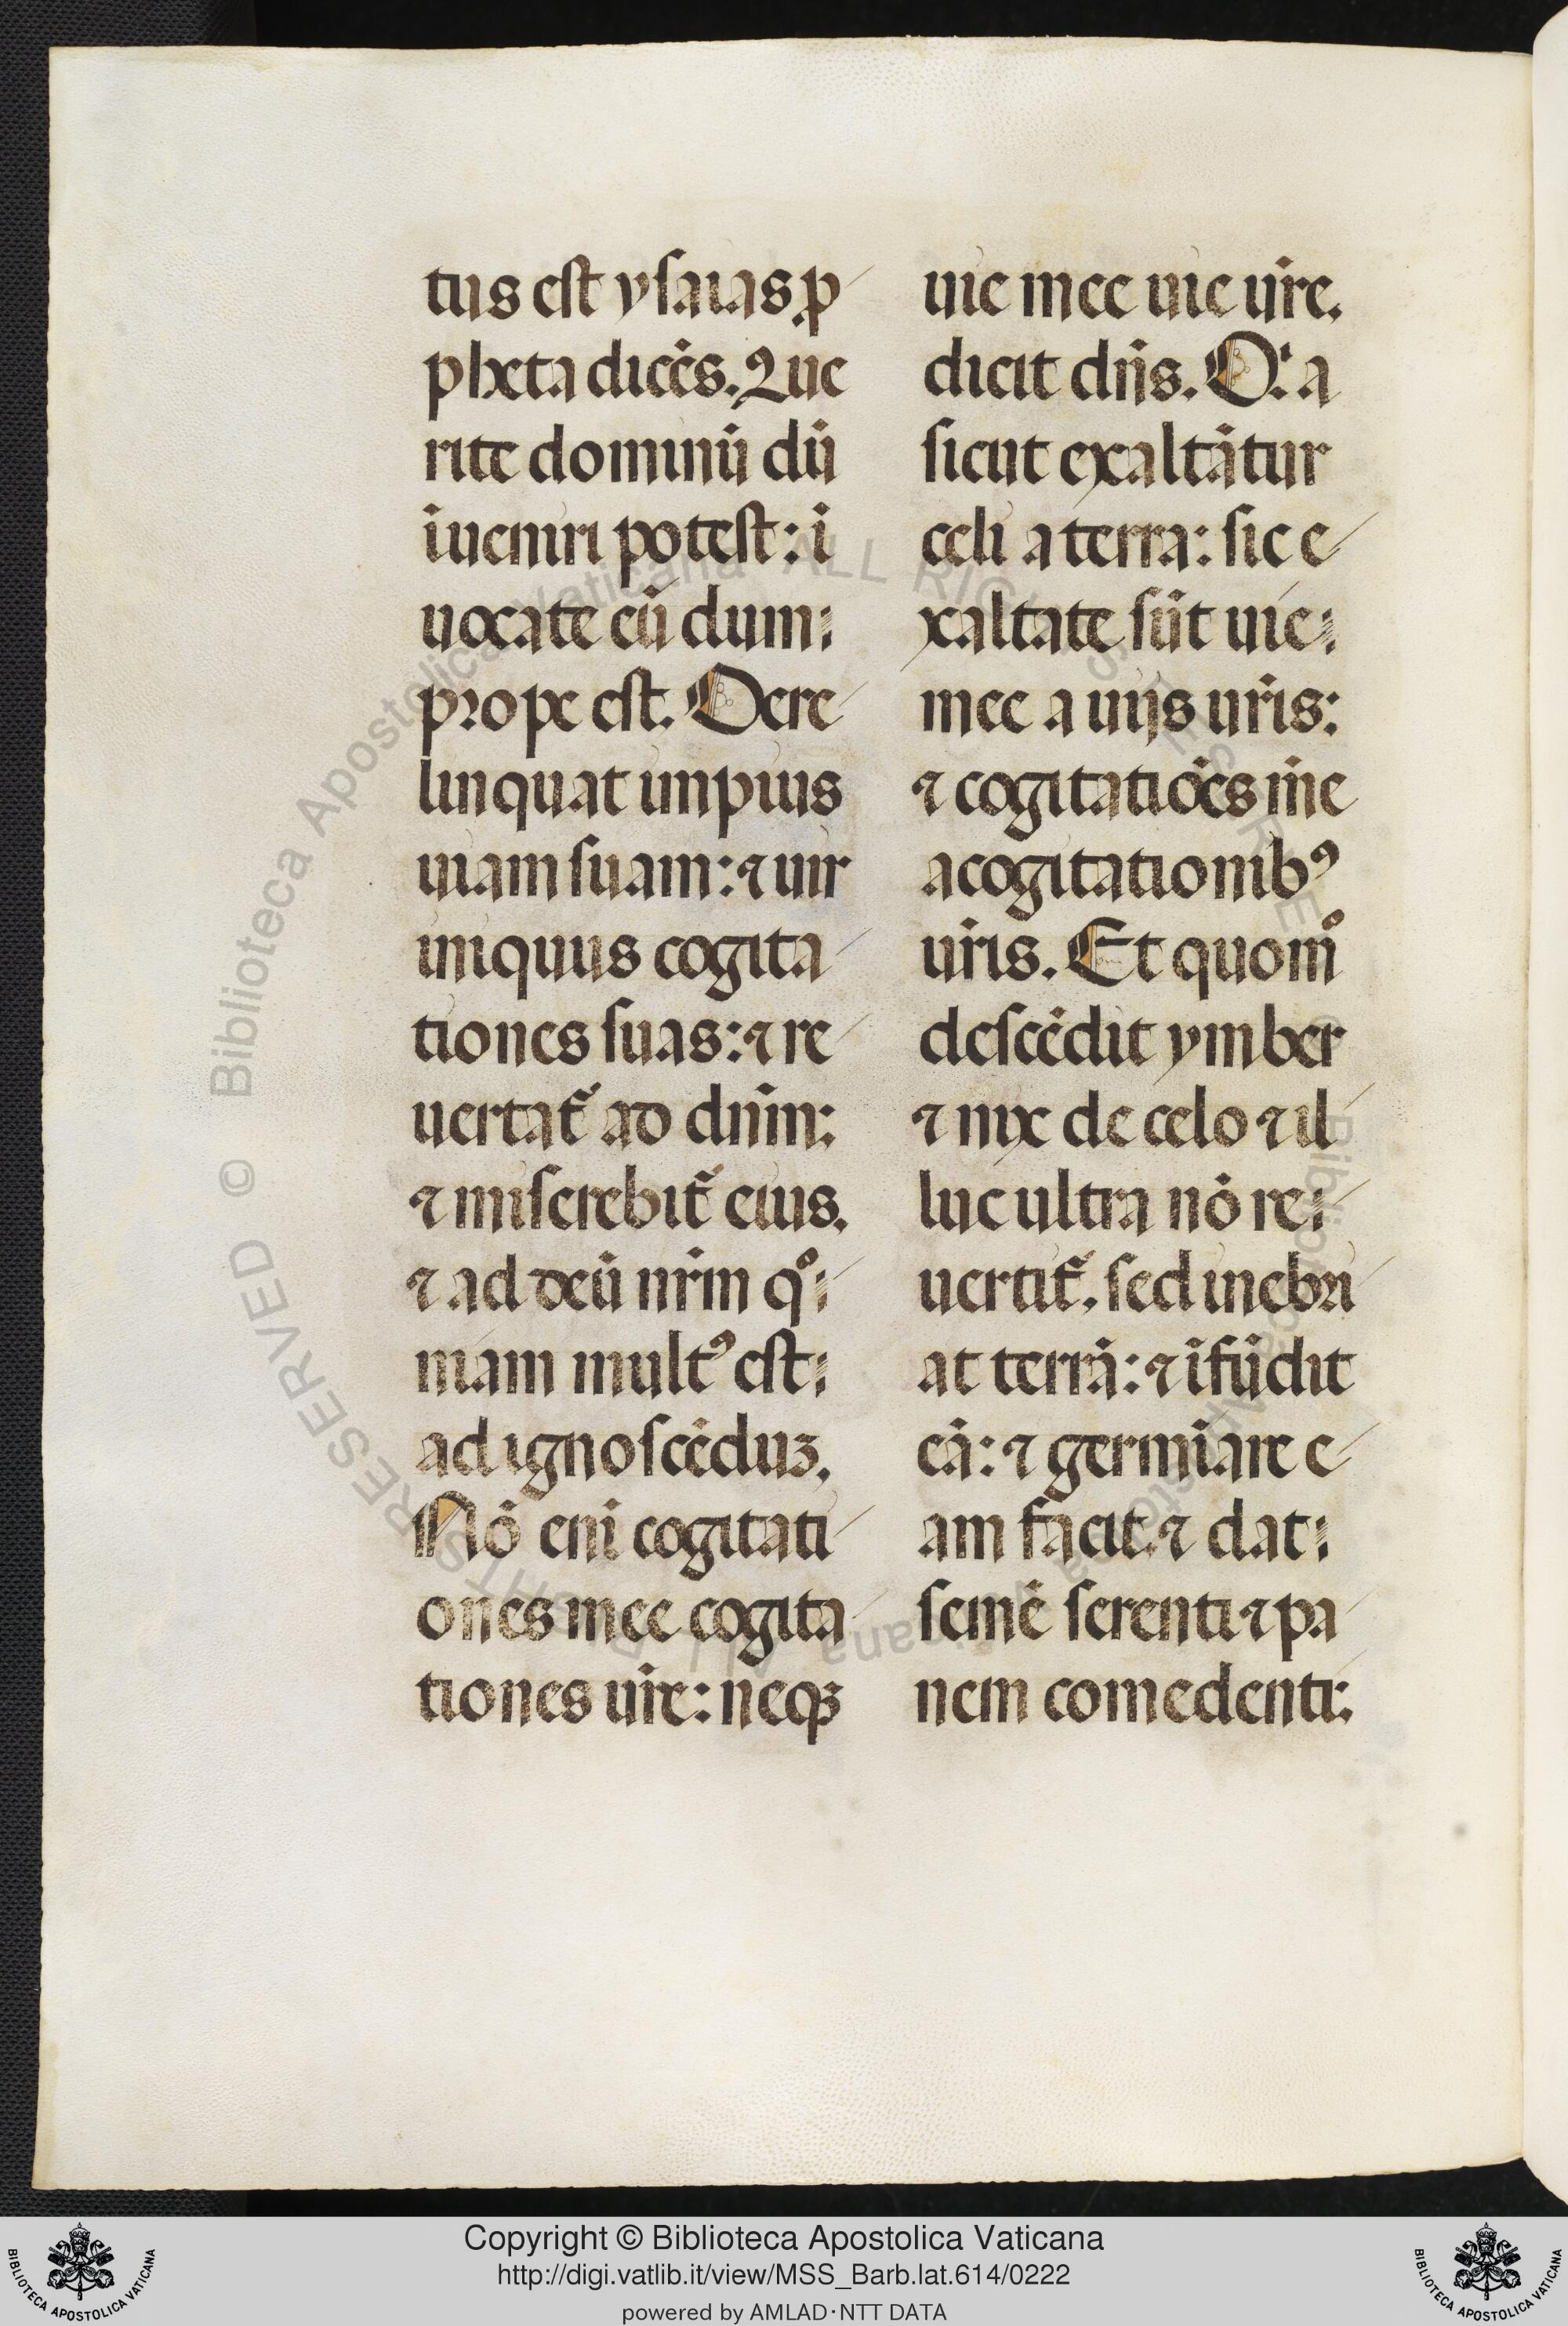 tus est ysaias ꝓ
pheta dicẽs. Que
rite dominũ dũ
ĩueniri potest: ĩ
uocate eũ dum
prope est. Dere
linquat impius
uiam suam: ⁊ uir
iniquus cogita
tiones suas: ⁊ re
uertat᷑ ad dñm:
⁊ miserebit᷑ eius.
⁊ ad deũ nr̃m qͦ
niam multꝰ est
ad ignoscẽduꝫ.
Nõ eni᷑ cogitati
ones mee cogita
tiones ur̃e: neqꝫ
uie mee uie ur̃e.
dicit dñs. Qͥa
sicut exaltãtur
celi a terra: sic e
xaltate sũt uie
mee a uijs ur̃is:
⁊ cogitatiões m̃e
a cogitationibꝰ
ur̃is. Et quom̊
descẽdit ymber
⁊ nix de celo ⁊ il
luc ultra nõ re
uertit᷑. sed inebri
at terrã: ⁊ ĩfũdit
eã: ⁊ germĩare e
am facit. ⁊ dat
semẽ serenti ⁊ pa
nem comedenti:
Copyright © Biblioteca Apostolica Vaticana
http://digi.vatlib.it/view/MSS_Barb.lat.614/0222
powered by AMLAD·NTT DATA
BIBLIOTECA APOSTOLICA VATICANA
BIBLIOTECA APOSTOLICA VATICANA